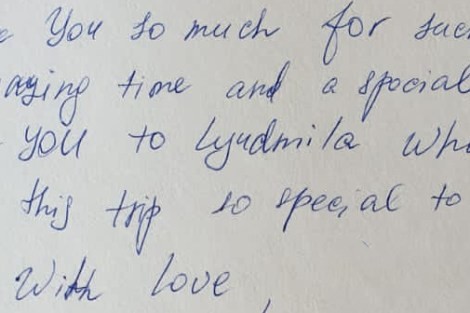 You so much for such
aying time and a spocial
you to Lyudmila who
this trip so special to
With love,